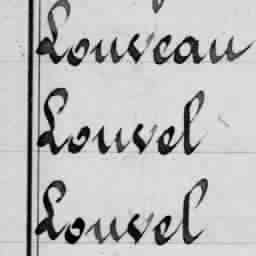 Louveau
Louvel
Louvel